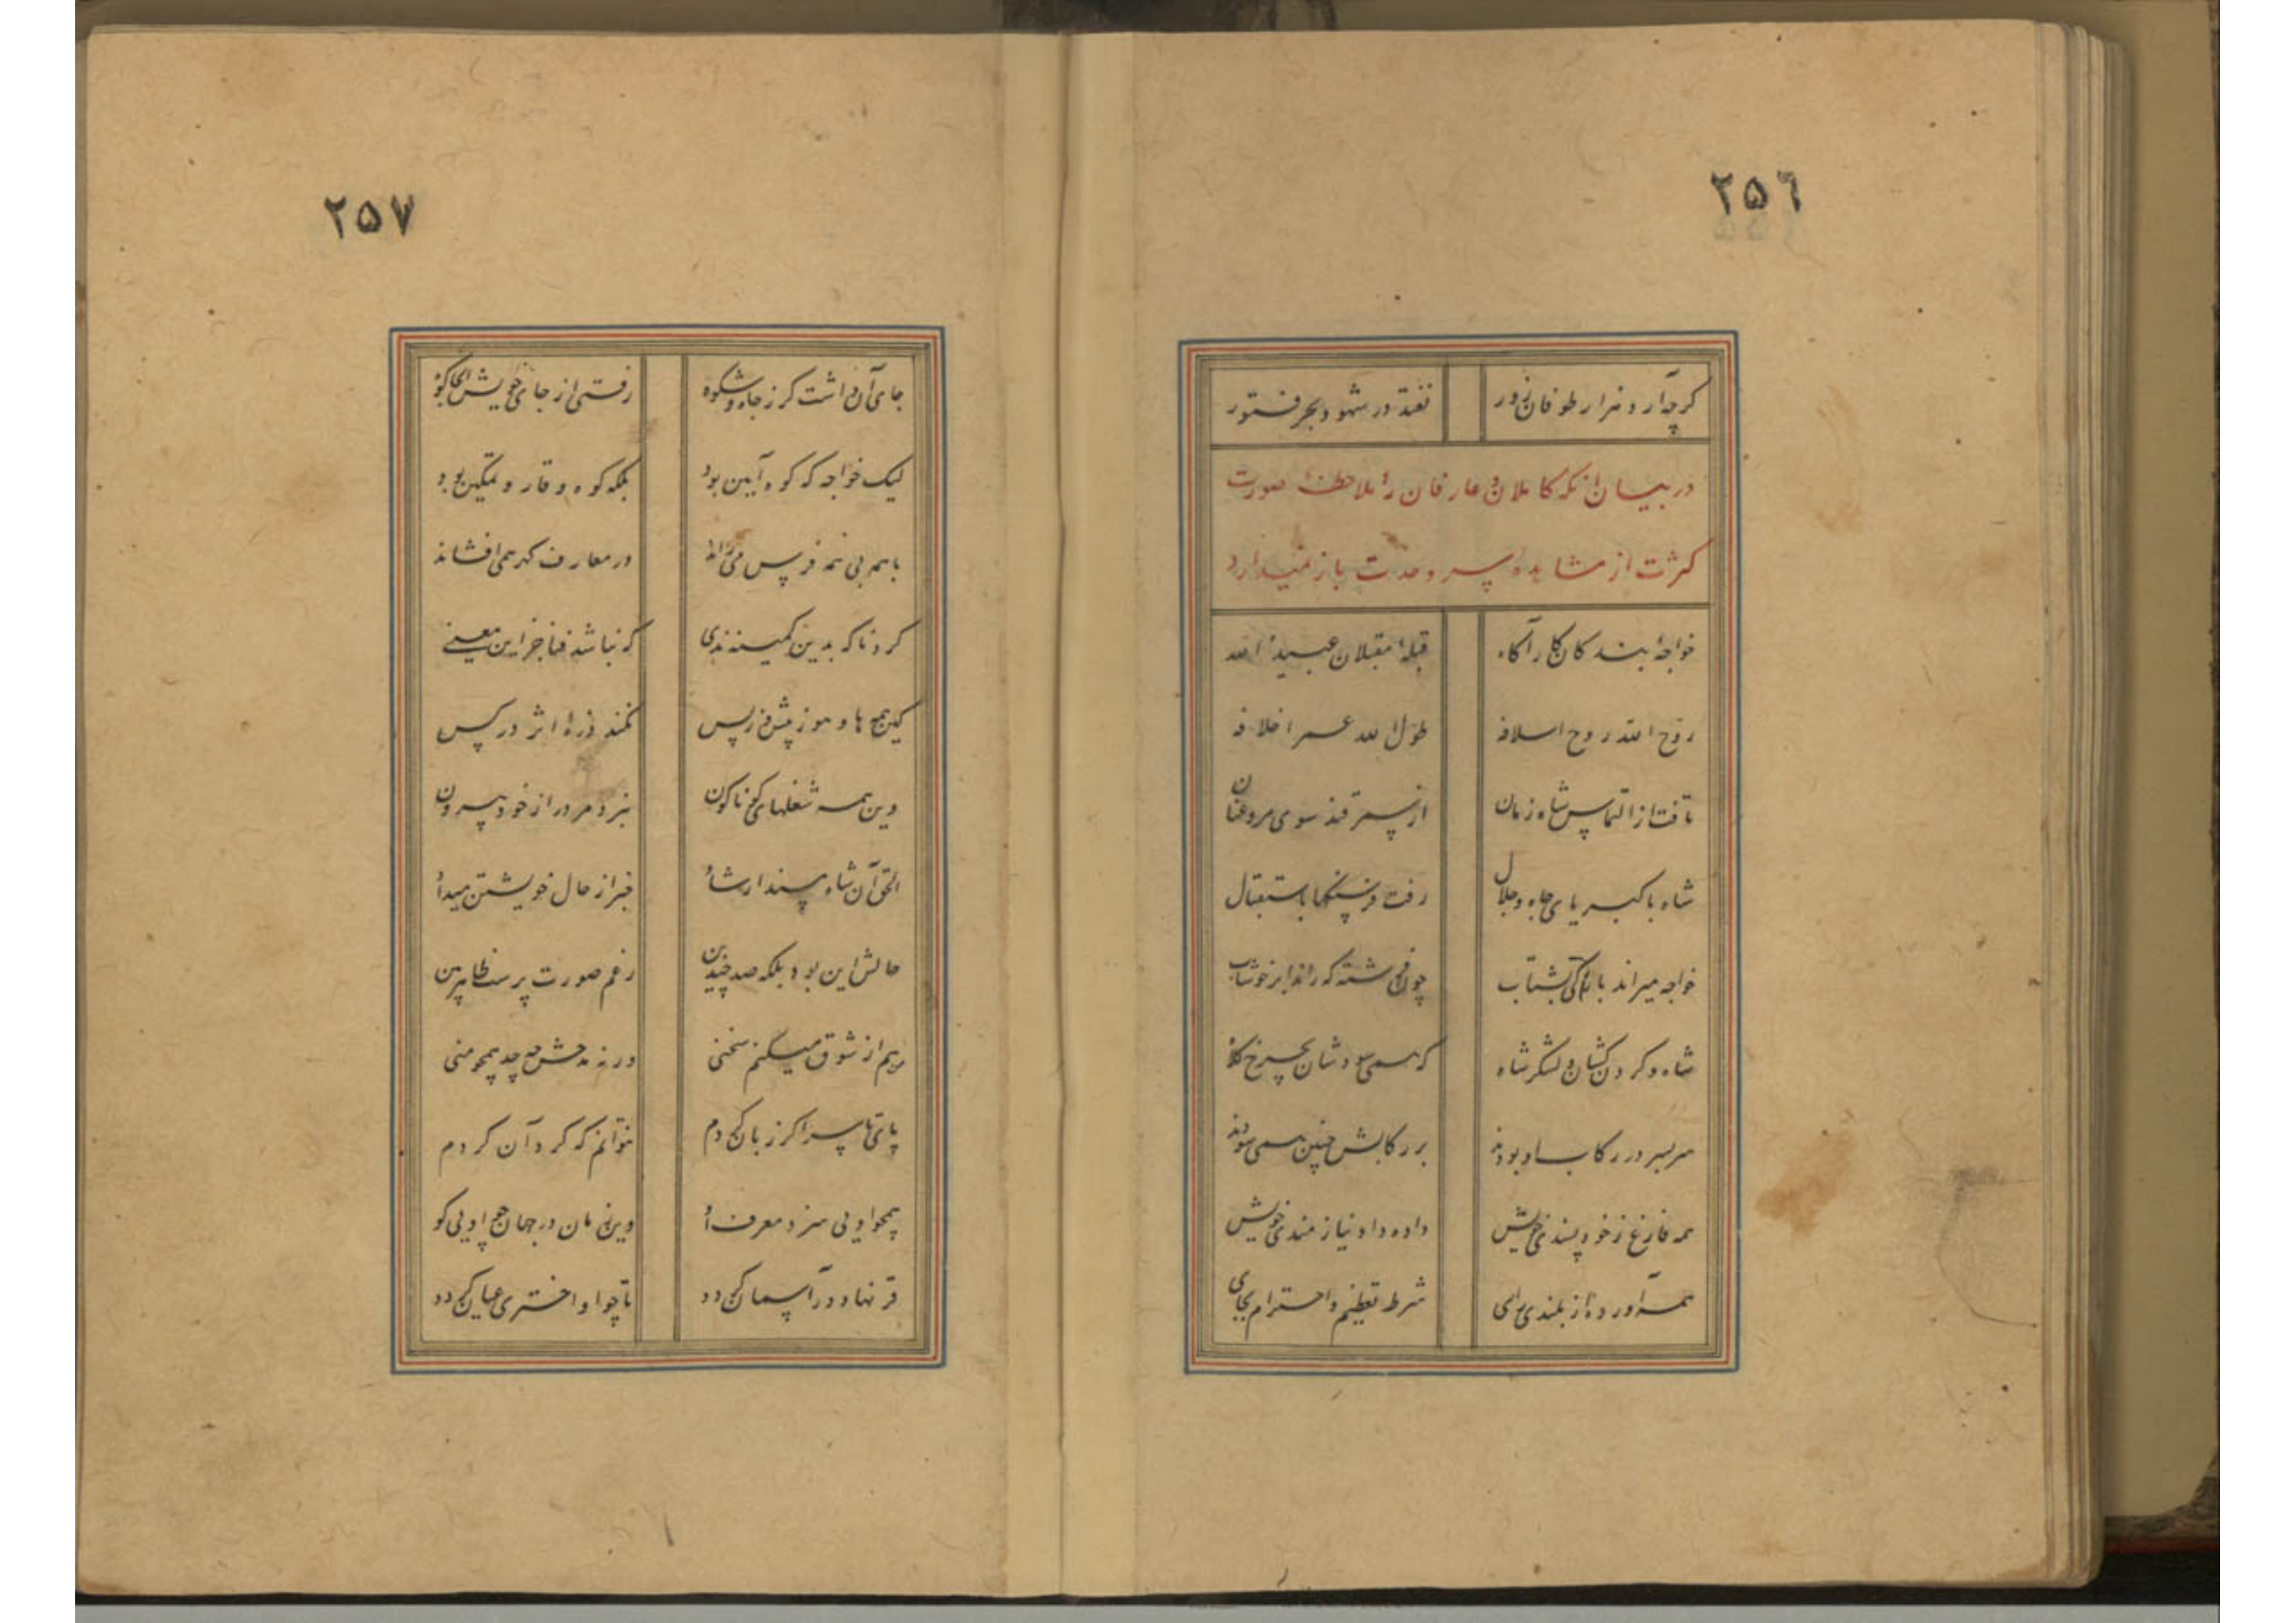 ۲۵۶
گرچه آرد هزار طوفان زور نفتد در شهود بحر فتور
در بیان آنکه کاملان و عارفان را ملاحظهٔ صورت
کثرت از مشاهدهٔ سر وحدت باز نمیدارد
خواجهٔ بندگان کار آگاه قبلهٔ مقبلان عبید الله
روح الله روح اسلافه طول الله عمر اخلافه
تافت از التماس شاه زمان از سمرقند سوی مرو عنان
شاه با کبریای جاه و جلال رفت فرسنگها باستقبال
خواجه میراند بارگی بشتاب چون فرشته که راند ابر خوشاب
شاه و گردن کشان و لشکر شاه که همی سودشان بچرخ کلاه
سر بسر در رکاب او بودند بر رکابش جبین همی سودند
همه فارغ ز خود پسندی خویش داده داد نیازمندی خویش
همه آورده از بلندی رای شرط تعظیم و احترام بجای
۲۵۷
جای آن داشت کز جاه و شکوه رفتی از جای خویش اگر کوه
لیک خواجه که کوه آیین بود بلکه کوه وقار و تمکین بود
با همه بی همه فرس می راند در معارف گهر همی افشاند
که نباشد فنا جز این معنی
کین همه های و هو ز پیش و ز پس نکند ذرهٔ اثر در کس
وین همه شغلهای گوناگون نبرد مرد را ز خود بیرون
الحق آن شاه مسند ارشاد خبر از حال خویشتن میداد
حالش این بود بلکه صد چندین رغم صورت پرست ظاهربین
من هم از شوق میکنم سخنی ورنه مدحش چه حد همچو منی
پای تا سر اگر زبان گردم نتوانم که گرد آن گردم
همچو اویی سزد معرف او وین زمان در جهان چو اویی کو
قرنها دور آسمان گردد تا چو او اختری عیان گردد